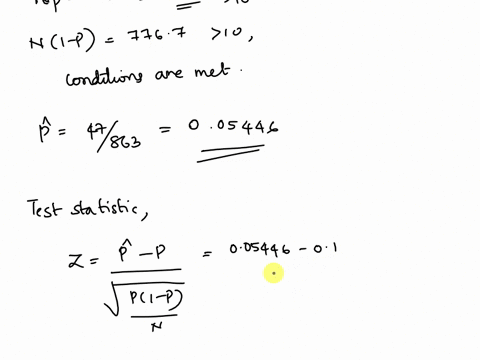 N(1-P) = 776.7 >10,
conditions are met.
p̂ = 47/863 = 0.05446
Test statistic,
Z = p̂ - P / √(P(1-P)/N) = 0.05446 - 0.1